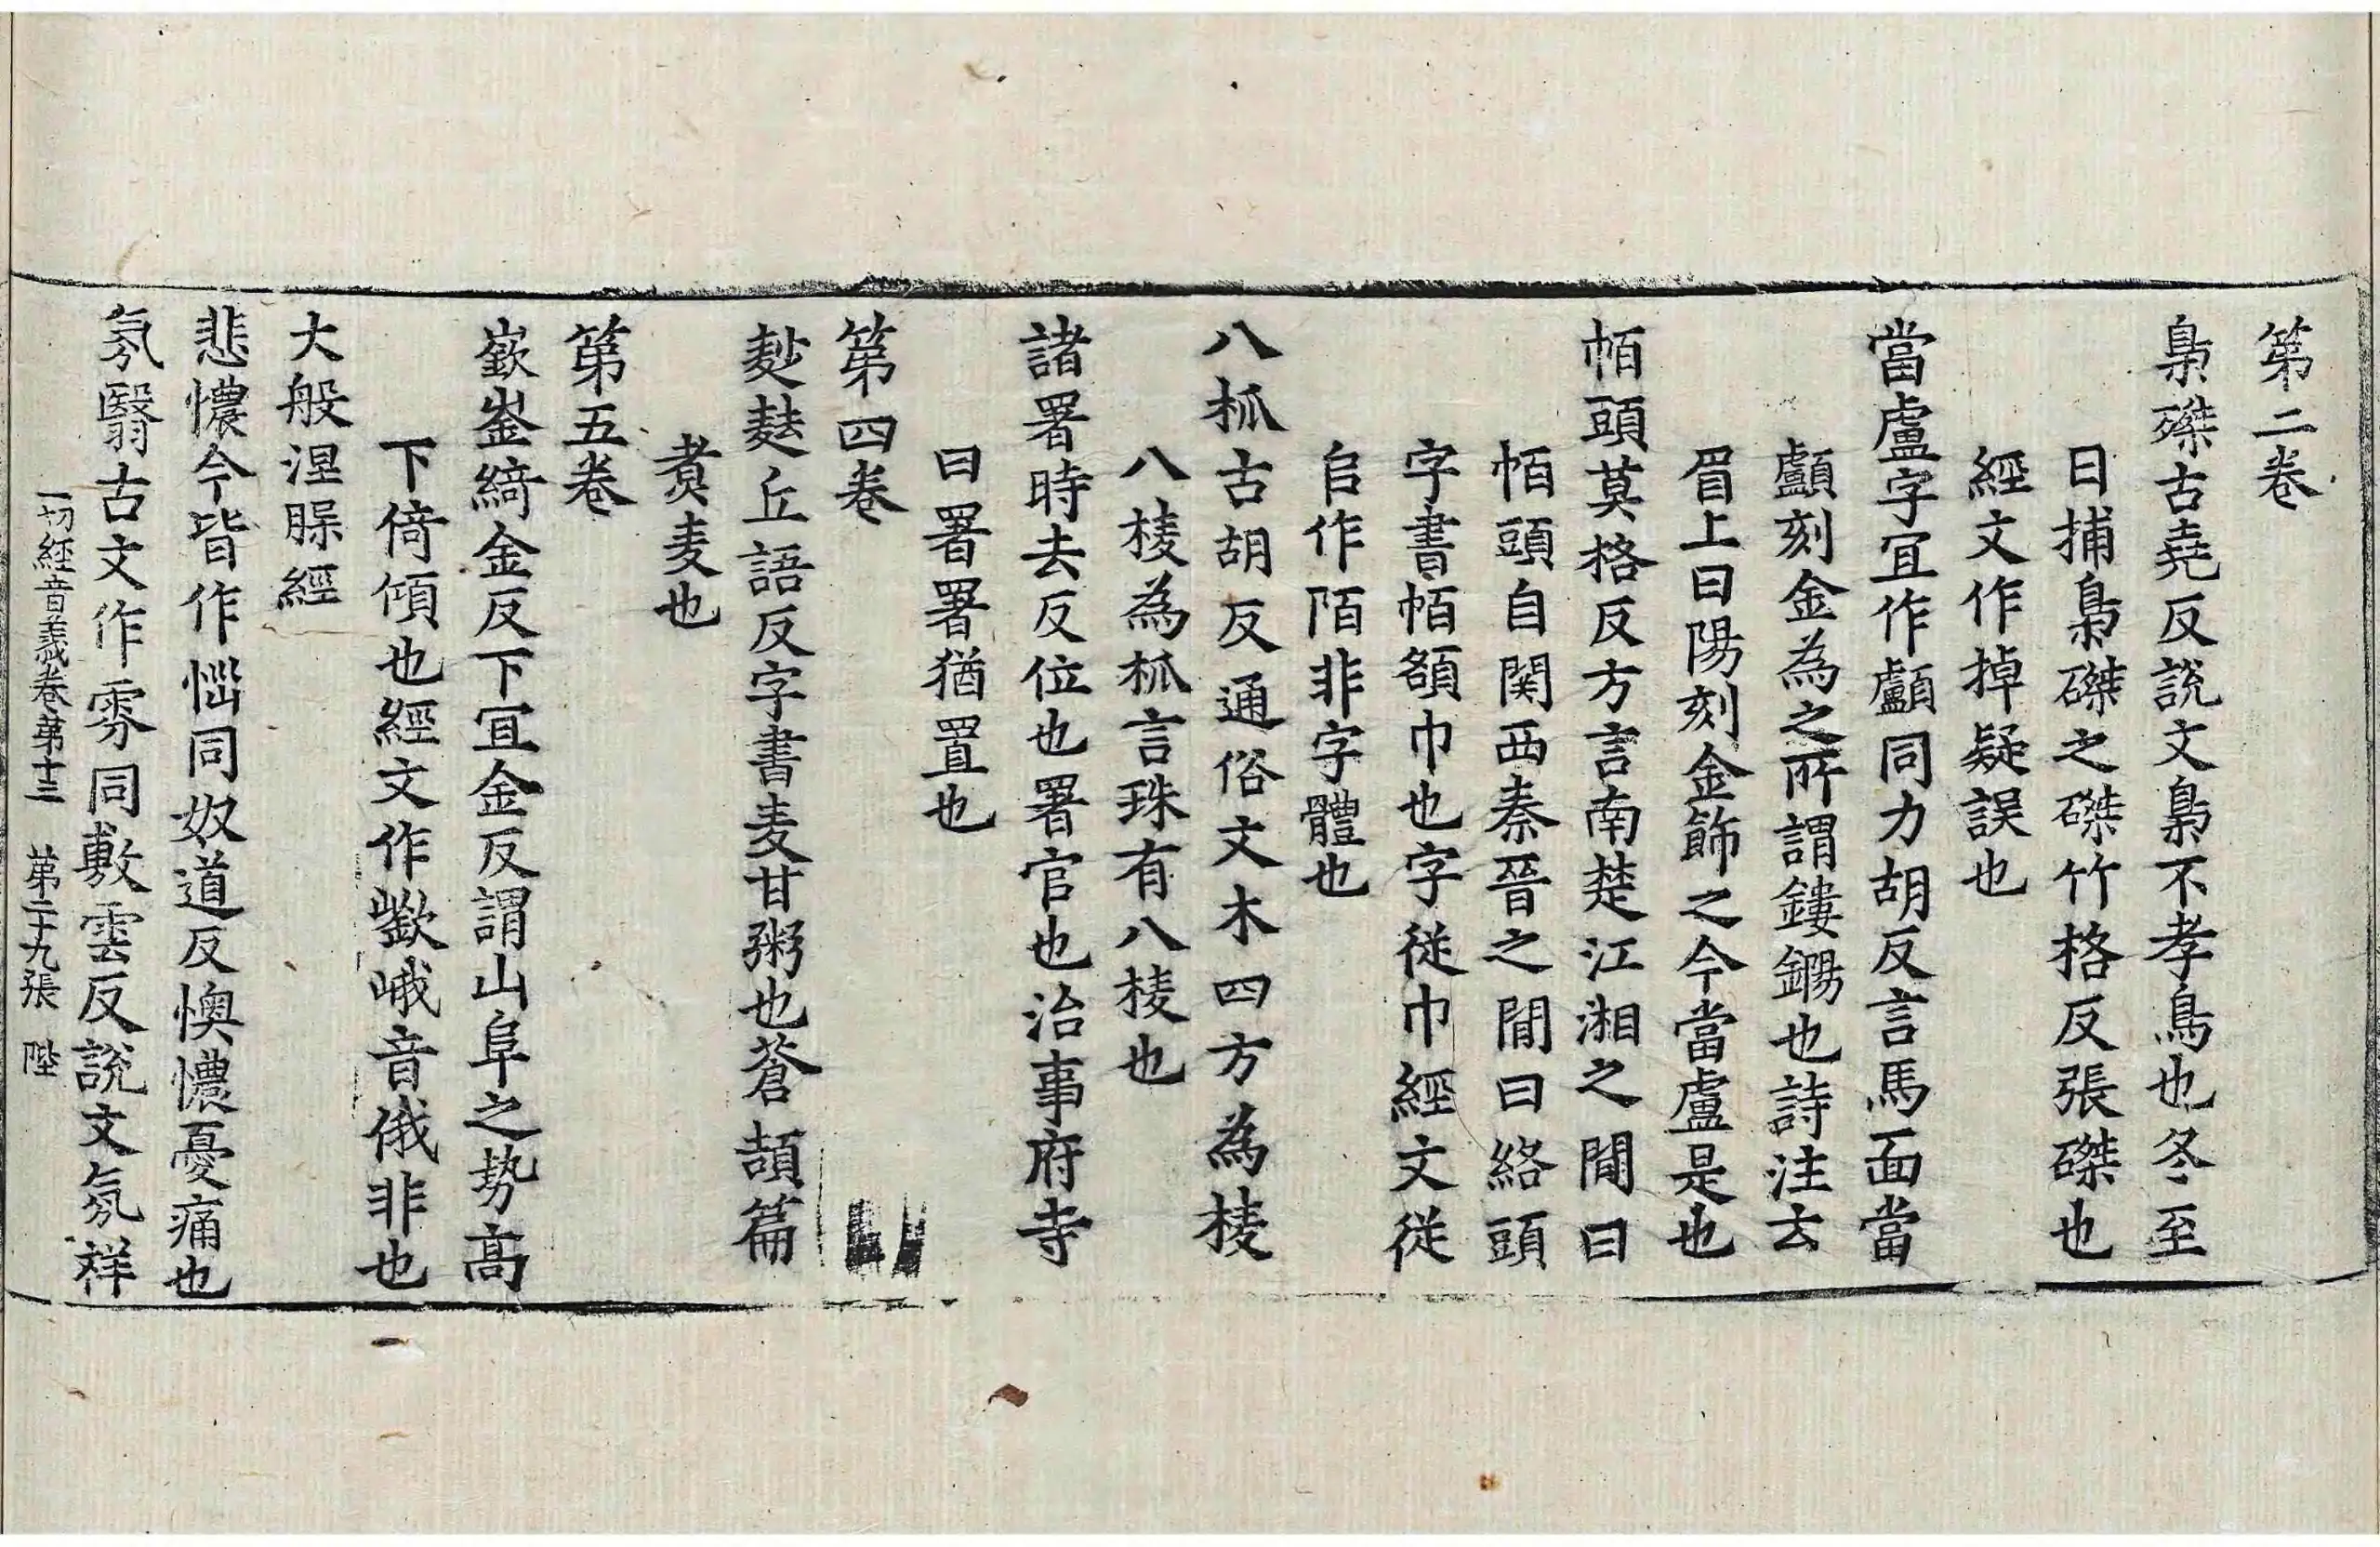 第二卷
梟磔古堯反說文梟不孝鳥也冬至
日捕梟磔之磔竹格反張磔也
經文作掉疑誤也
當盧字冝作顱同力胡反言馬面當
顱刻金為之所謂鏤鍚也詩注云
眉上曰陽刻金飾之今當盧是也
帞頭莫格反方言南楚江湘之閒曰
帞頭自関西秦晉之閒曰絡頭
字書帞頟巾也字従巾經文従
𠂤作陌非字體也
八柧古胡反通俗文木四方為棱
八棱為柧言珠有八棱也
諸署時去反位也署官也治事府寺
曰署署猶置也
第四卷
麨䴬丘語反字書麦甘粥也蒼頡篇
䴬麦也
第五卷
嶔崟綺金反下冝金反謂山阜之势高
下倚傾也經文作㰂峨音俄非也
大般涅脲經
悲憹今皆作惱同奴道反懊憹憂痛也
氛翳古文作雰同敷雲反說文氛祥
一切經音義卷第十三 第二十九張 陛